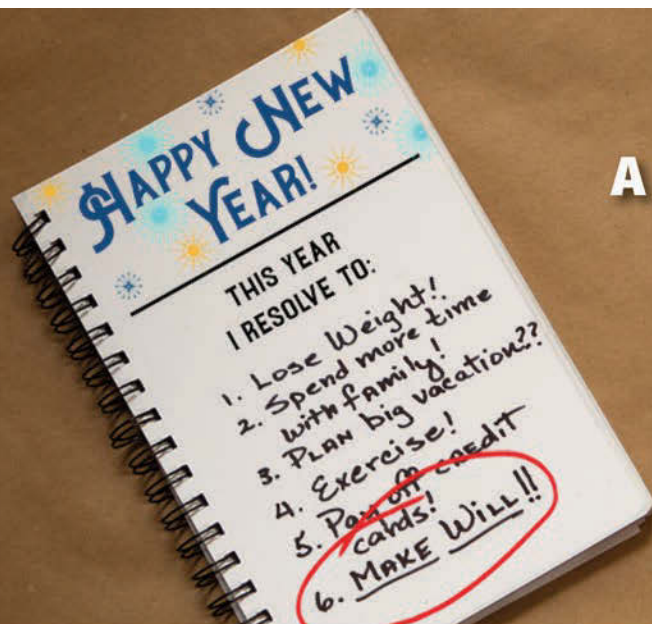 HAPPY NEW
YEAR!
A
THIS YEAR
I RESOLVE TO:
1. Lose Weight!
2. Spend more time
with family!
3. PLAN big vacation??
4. Exercise!
5. Pay off credit
cards!
6. MAKE WILL!!